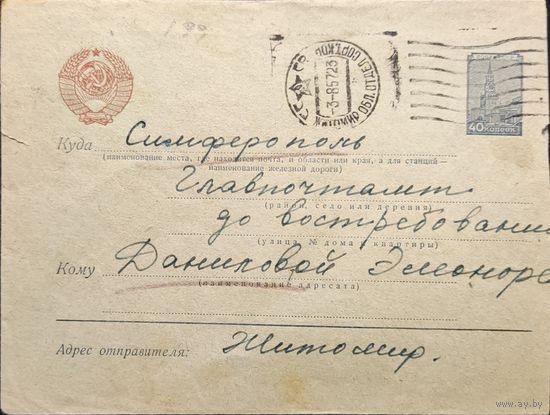 40 КОПЕЕК
Куда Симферополь
(наименование места, где находится почта, и области или края, а для станций —
наименование железной дороги)
Главпочтамт
(район, село или деревня)
до востребования
(улица, № дома и квартиры)
Кому Даниловой Элеоноре
(наименование адресата)
Адрес отправителя: Житомир.
www.ay.by